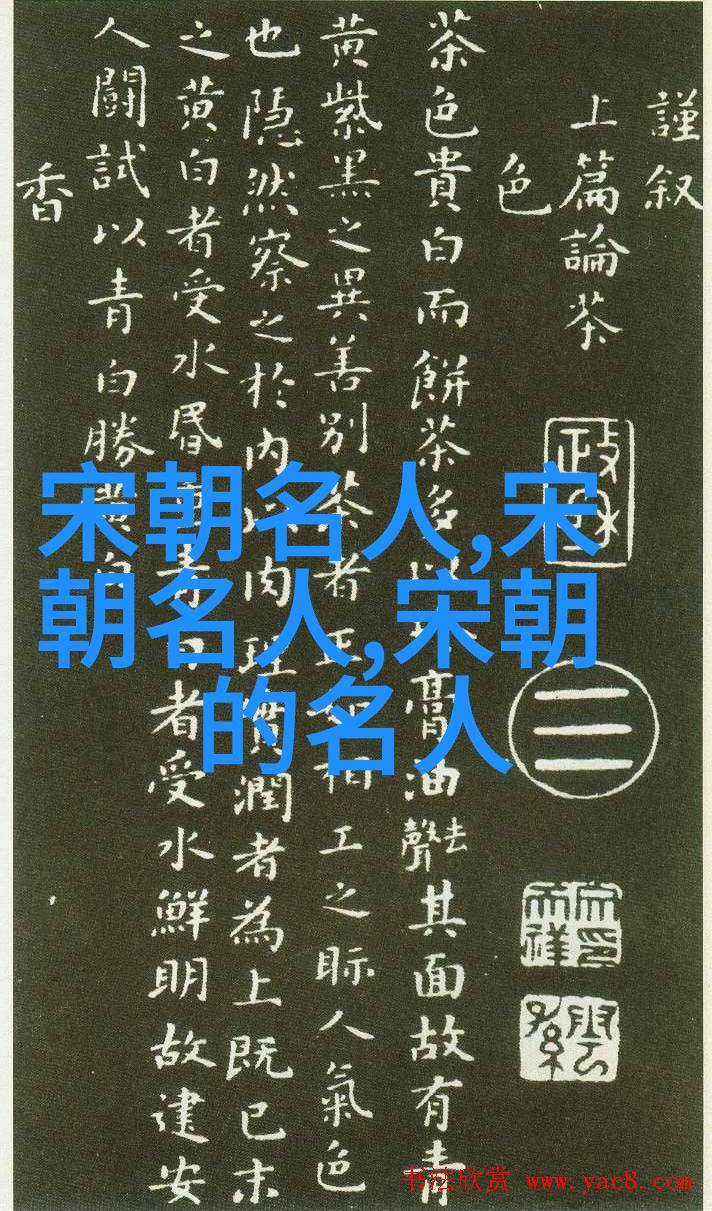 謹叙
上篇論茶
色
茶色貴白而餅茶多以膏油去聲其面故有青
黄紫黑之異善别茶者正如相工之眎人氣色
也隠然察之於内以肉理實潤者為上既已末
之黄白者受水昬重青白者受水鮮明故建安
人闘試以青白勝黄白
香
宋朝名人,宋
朝名人,宋朝
的名人
书法欣赏 www.yac8.com